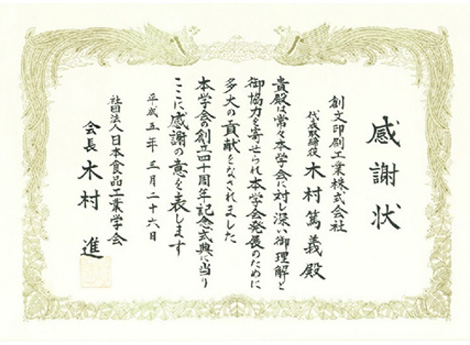 感謝状
創文印刷工業株式会社
代表取締役 木村篤義殿
貴殿は常々本学会に対し深い御理解と
御協力を寄せられ本学会発展のために
多大の貢献をなされました
本学会の創立四十周年記念式典に当り
ここに感謝の意を表します
平成五年三月二十六日
社団法人日本食品工業学会
会長 木村進